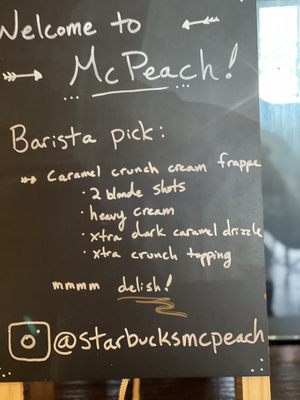 Welcome to
McPeach!
Barista pick:
Caramel crunch cream frappe
· 2 blonde shots
· heavy cream
· xtra dark caramel drizzle
· xtra crunch topping
mmmm delish!
@starbucksmcpeach